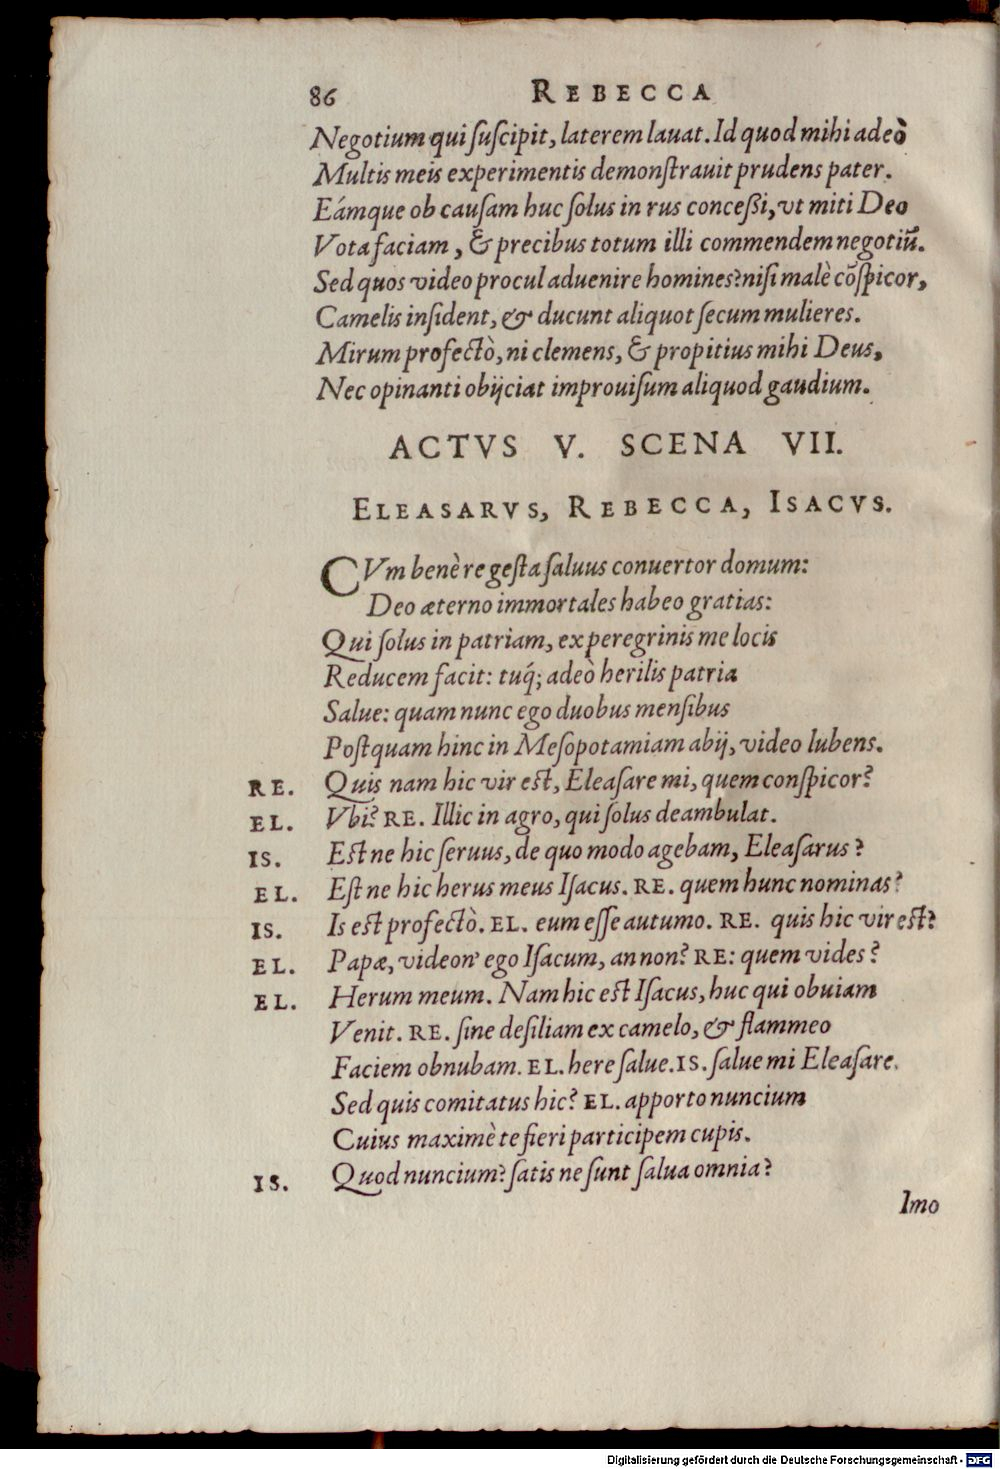 86 REBECCA
Negotium qui ſuſcipit, laterem lauat. Id quod mihi adeò
Multis meis experimentis demonſtrauit prudens pater.
Eámque ob cauſam huc ſolus in rus conceßi, vt miti Deo
Vota faciam, & precibus totum illi commendem negotiũ.
Sed quos video procul aduenire homines? niſi malè cõſpicor,
Camelis inſident, & ducunt aliquot ſecum mulieres.
Mirum profectò, ni clemens, & propitius mihi Deus,
Nec opinanti obijciat improuiſum aliquod gaudium.
ACTVS V. SCENA VII.
ELEASARVS, REBECCA, ISACVS.
CVm benè re geſta ſaluus conuertor domum:
Deo æterno immortales habeo gratias:
Qui ſolus in patriam, ex peregrinis me locis
Reducem facit: tuq́; adeò herilis patria
Salue: quam nunc ego duobus menſibus
Poſtquam hinc in Meſopotamiam abij, video lubens.
RE. Quis nam hic vir eſt, Eleaſare mi, quem conſpicor?
EL. Vbi? RE. Illic in agro, qui ſolus deambulat.
IS. Eſt ne hic ſeruus, de quo modo agebam, Eleaſarus?
EL. Eſt ne hic herus meus Iſacus. RE. quem hunc nominas?
IS. Is eſt profectò. EL. eum eſſe autumo. RE. quis hic vir eſt?
EL. Papæ, videon' ego Iſacum, an non? RE: quem vides?
EL. Herum meum. Nam hic eſt Iſacus, huc qui obuiam
Venit. RE. ſine deſiliam ex camelo, & flammeo
Faciem obnubam. EL. here ſalue. IS. ſalue mi Eleaſare.
Sed quis comitatus hic? EL. apporto nuncium
Cuius maximè te fieri participem cupis.
IS. Quod nuncium? ſatis ne ſunt ſalua omnia?
Imo
Digitalisierung gefördert durch die Deutsche Forschungsgemeinschaft - DFG